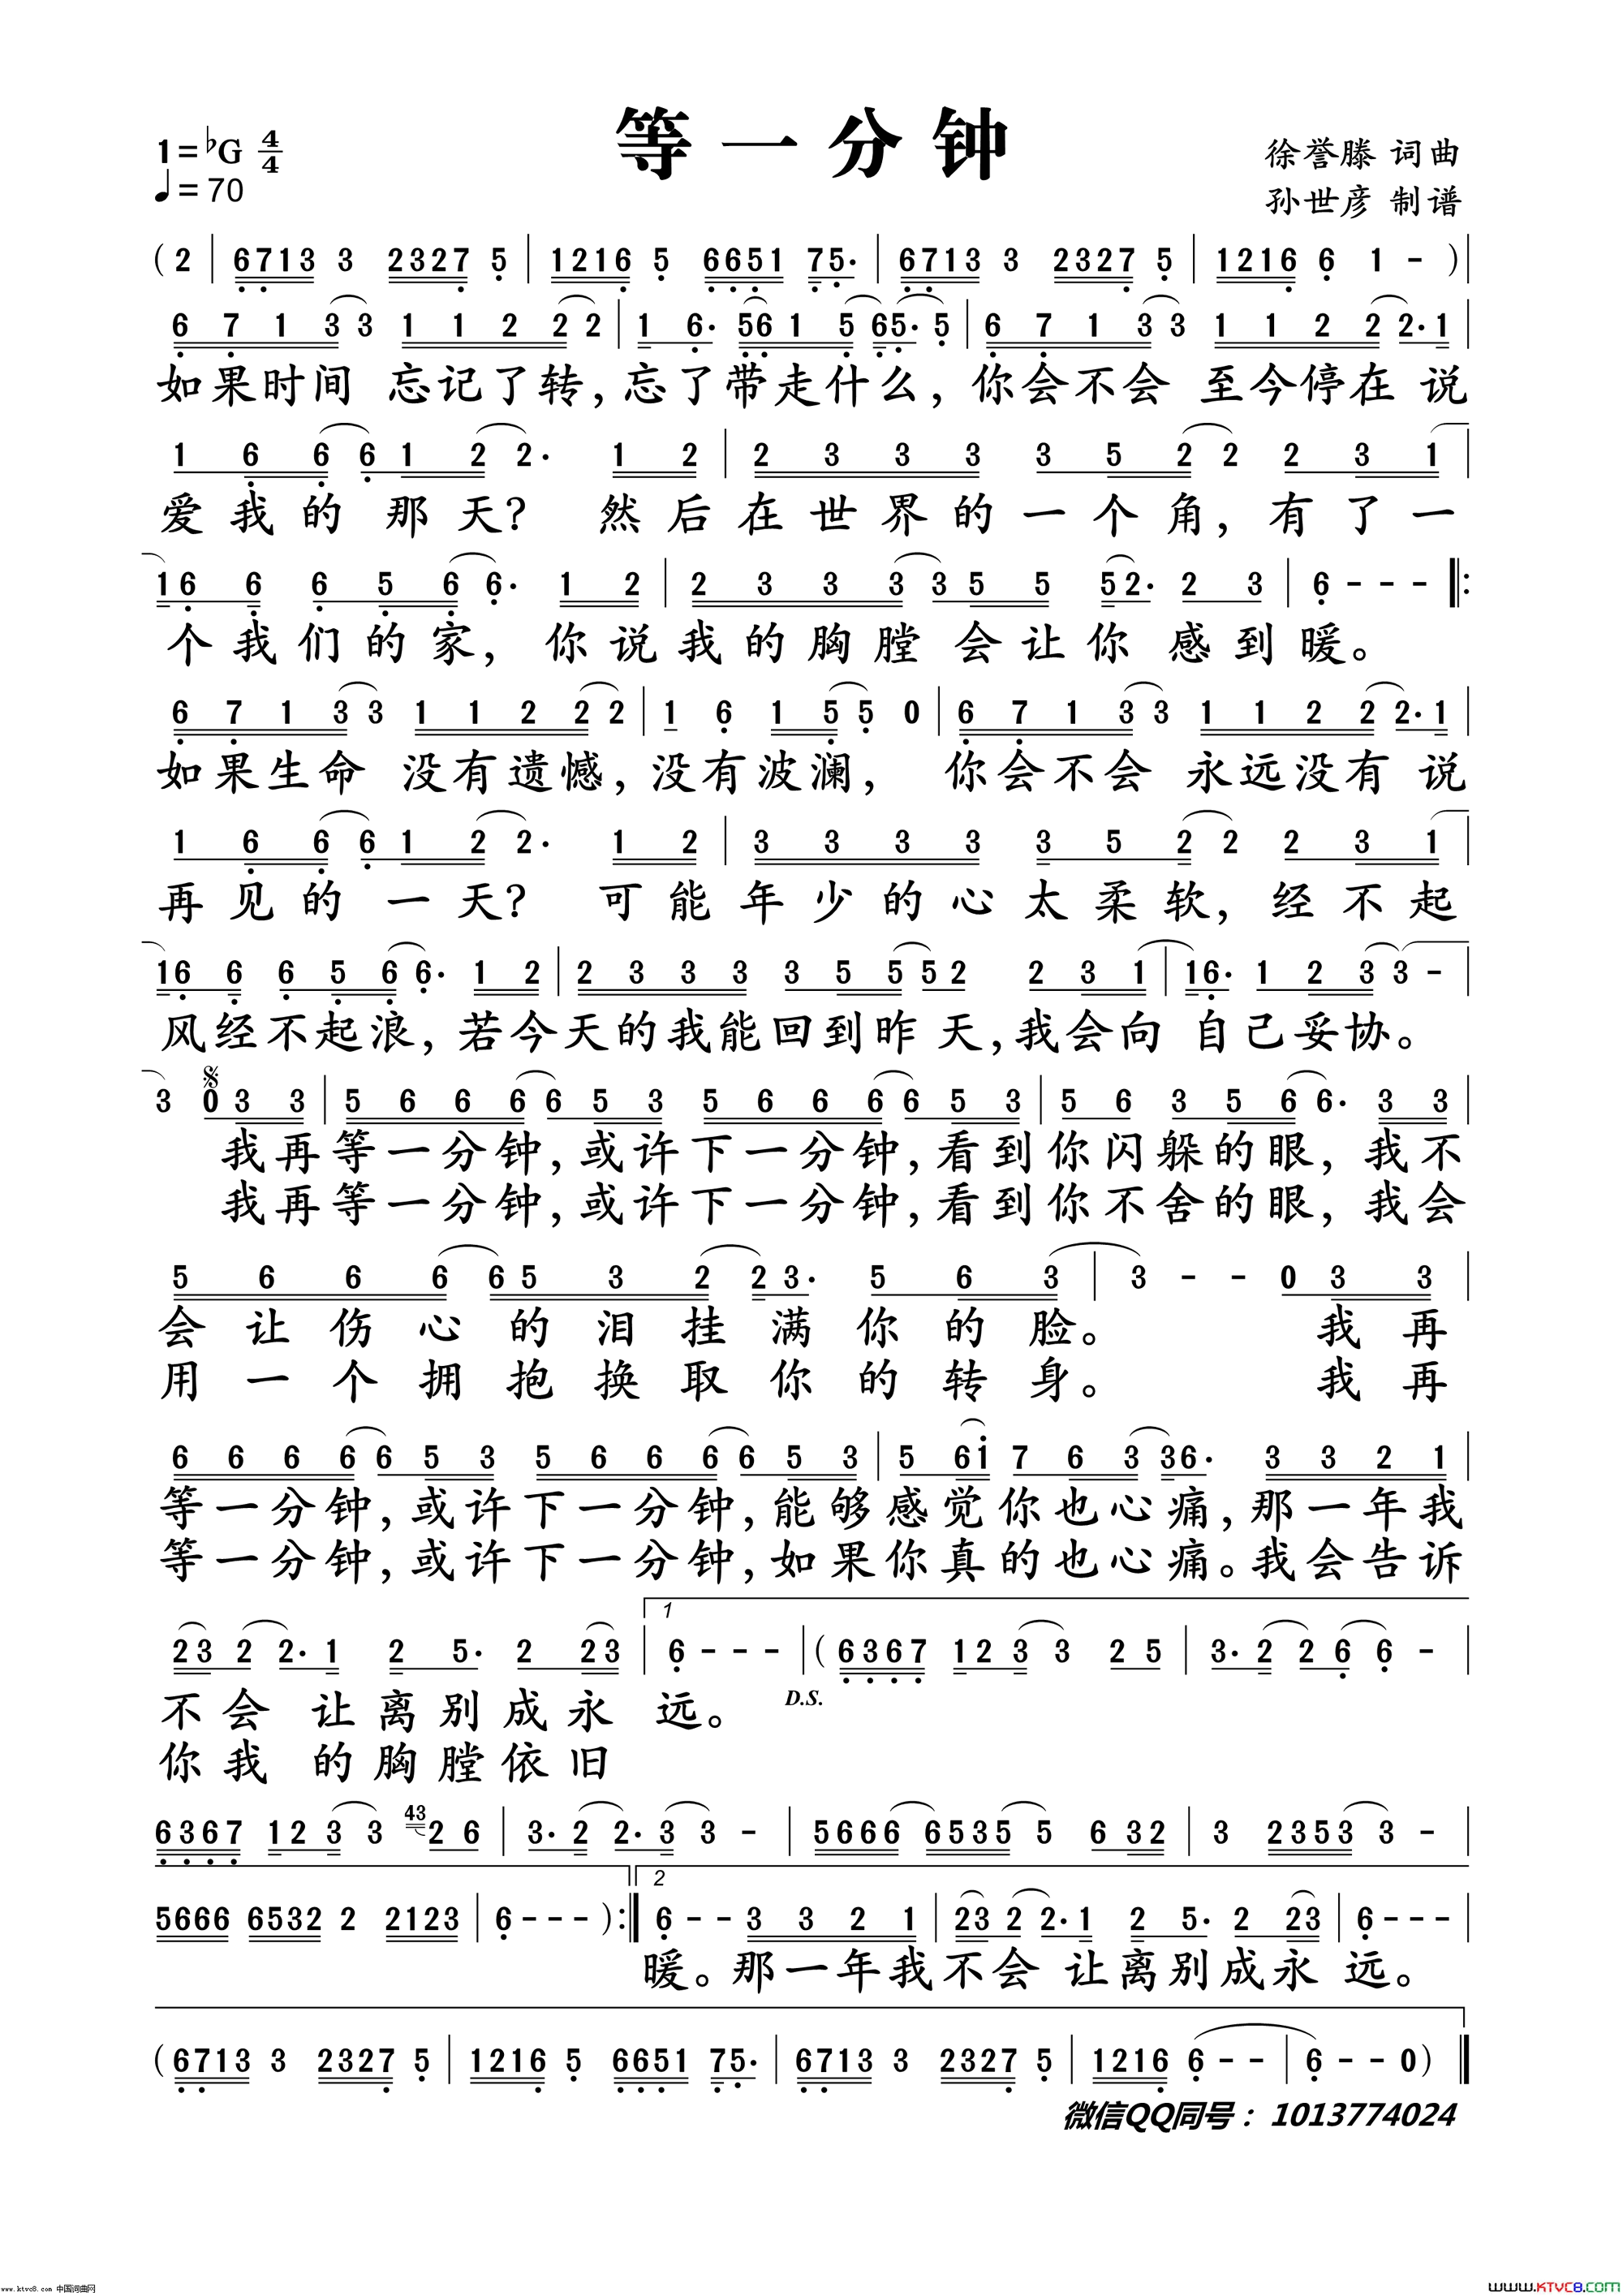 等一分钟
1=♭G 4/4
徐誉滕 词曲
♩=70
孙世彦 制谱
(2 | 6713 3 2327 5 | 1216 5 6651 75. | 6713 3 2327 5 | 1216 6 1 - )|
6 7 1 3 3 1 1 2 2 2 | 1 6. 56 1 5 65. 5 | 6 7 1 3 3 1 1 2 2 2. 1 |
如果时间 忘记了转,忘了带走什么,你会不会 至今停在 说
1 6 6 6 1 2 2. 1 2 | 2 3 3 3 3 5 2 2 2 3 1 |
爱我的那天? 然后在世界的一个角,有了一
16 6 6 5 6 6. 1 2 | 2 3 3 3 3 5 5 52. 2 3 | 6 - - - ‖:
个我们的家,你说我的胸膛会让你感到暖。
6 7 1 3 3 1 1 2 2 2 | 1 6 1 5 5 0 | 6 7 1 3 3 1 1 2 2 2. 1 |
如果生命 没有遗憾,没有波澜, 你会不会 永远没有 说
1 6 6 6 1 2 2. 1 2 | 3 3 3 3 3 5 2 2 2 3 1 |
再见的一天? 可能年少的心太柔软,经不起
16 6 6 5 6 6. 1 2 | 2 3 3 3 3 5 5 5 2 2 3 1 | 16. 1 2 3 3 - |
风经不起浪,若今天的我能回到昨天,我会向 自己妥协。
3 0 3 3 | 5 6 6 6 6 5 3 5 6 6 6 6 5 3 | 5 6 3 5 6 6. 3 3 |
我再等一分钟,或许下一分钟,看到你闪躲的眼,我不
我再等一分钟,或许下一分钟,看到你不舍的眼,我会
5 6 6 6 6 5 3 2 2 3. 5 6 3 | 3 - - 0 3 3 |
会让伤心的泪挂满你的脸。 我再
用一个拥抱换取你的转身。 我再
6 6 6 6 6 5 3 5 6 6 6 6 5 3 | 5 6i 7 6 3 36. 3 3 2 1 |
等一分钟,或许下一分钟,能够感觉你也心痛,那一年我
等一分钟,或许下一分钟,如果你真的也心痛。我会告诉
1
23 2 2. 1 2 5. 2 23 | 6 - - - | (6367 12 3 3 2 5 | 3. 2 2 6 6 - |
D.S.
不会 让离别成永 远。
你我 的胸膛依旧
6367 12 3 3 43 2 6 | 3. 2 2. 3 3 - | 5666 6535 5 6 32 | 3 2353 3 - |
2
5666 6532 2 2123 | 6 - - - ):‖ 6 - - 3 3 2 1 | 23 2 2. 1 2 5. 2 23 | 6 - - - |
暖。那一年我不会 让离别成永 远。
(6713 3 2327 5 | 1216 5 6651 75. | 6713 3 2327 5 | 1216 6 - - | 6 - - 0) ‖
微信QQ同号：1013774024
www.ktvc8.com 中国词曲网
WWW.KTVC8.COM